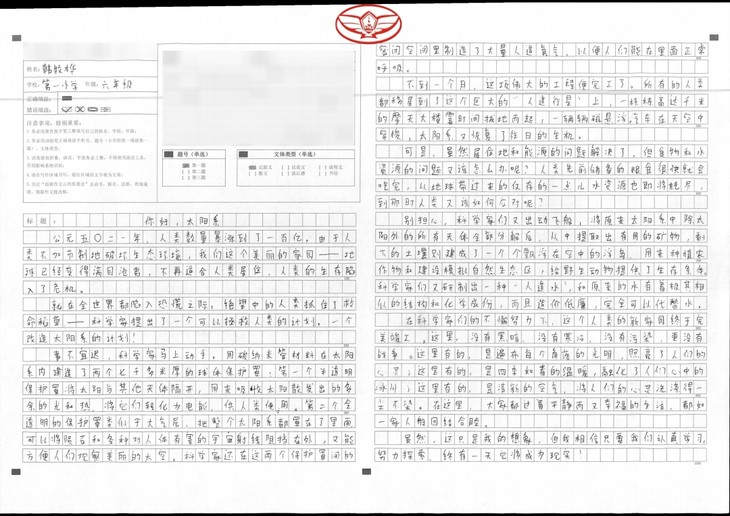 姓名：
学校：第一小学 年级：六年级
正确填涂：
错误填涂：
注意事项，特别重要：
题号（单选）
第一题
第二题
第三题
文体类型（单选）
记叙文
议论文
说明文
散文
读后感
书信
标题：你好，太阳系
公元五〇二一年，人类数量暴涨到了一百亿。由于人
类不加节制地破坏生态环境，我们这个美丽的家园——地
球已经变得满目沧夷，不再适合人类居住，人类的生存陷
入了危机。
就在全世界都陷入恐慌之际，绝望中的人类抓住了救
命稻草——科学家提出了一个可以拯救人类的计划。一个
改造太阳系的计划！
事不宜迟，科学家马上动手。用碳纳米管材料在太阳
系内建造了两个七千多米厚的球体保护罩：第一个半透明
保护罩将太阳与其他天体隔开，用来吸收太阳散发出的多
余的光和热，将它们转化为电能，供人类使用。第二个全
透明的保护罩类似于大气层，把整个太阳系都罩在了里面，
可以将陨石和各种对人体有害的宇宙射线阻挡在外，又能
方便人们观察美丽的太空。科学家还在这两个保护罩间的
空间空间里制造了大量人造氧气，以便人们能在里面正常
呼吸。
不到一个月，这项伟大的工程便完工了。所有的人类
都移居到了这个巨大的"人造行星"上，一栋栋高达千米
的摩天大楼霎时间拔地而起，一辆辆磁悬浮汽车在天空中
穿梭，太阳系又恢复了往日的生机。
可是，虽然居住地和能源的问题解决了，但食物和水
资源的问题又该怎么办呢？人类先前储备的粮食很快就会
吃完，从地球带过来的仅存的一点儿水资源也即将耗尽，
到那时人类又该如何应对呢？
别担心，科学家们又出动飞船，将原来太阳系中除太
阳外的所有天体全部分解后，从中提取出有用的矿物，剩
下的土壤则建成了一个个飘浮在空中的浮岛，用来种植农
作物和建造模拟自然生态区，给野生动物提供了生存条件。
科学家们又研制出一种"人造水"，和原来的水有着极其相
似的结构和化学成份，而且造价低廉，完全可以代替水。
在科学家们的不懈努力下，这个人类的新家园终于完
美竣工。这里，没有黑暗，没有寒冷，没有污染，更没有
战争。这里有的，是遍布每个角落的光明，照亮了人们的
心灵；这里有的，是四季如春的温暖，融化了人们心中的
冰川；这里有的，是清新的空气，将人们的心灵洗涤得一
尘不染。在这里，大家都过着平静而又幸福的生活，都如
一家人般团结合睦。
虽然，这只是我的想象，但我相信只要我们认真学习，
努力探索，终有一天它将成为现实！